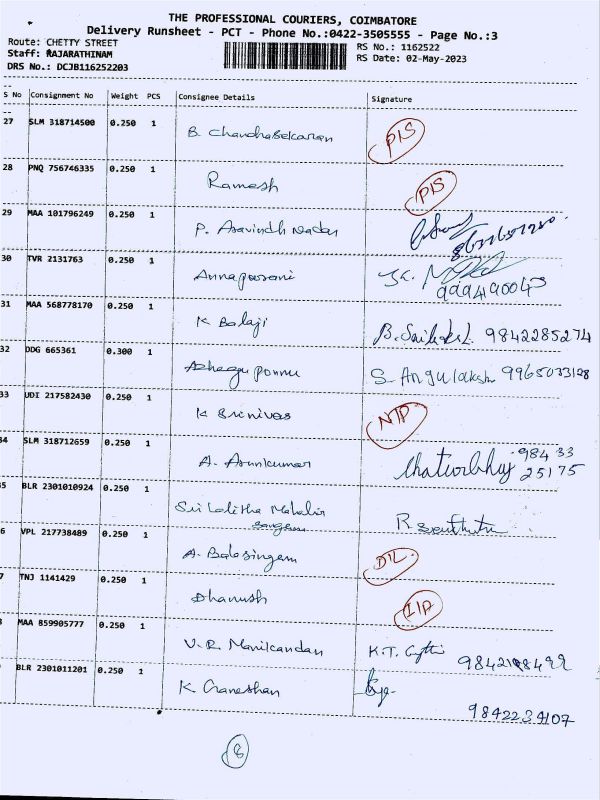 THE PROFESSIONAL COURIERS, COIMBATORE
Delivery Runsheet - PCT - Phone No.:0422-3505555 - Page No.:3
Route: CHETTY STREET RS No.: 1162522
Staff: RAJARATHINAM RS Date: 02-May-2023
DRS No.: DCJB116252203
S No Consignment No Weight PCS Consignee Details Signature
27 SLM 318714500 0.250 1
B. Chandrasekaran PIS
28 PNQ 756746335 0.250 1
Ramesh PIS
29 MAA 101796249 0.250 1
P. Aravindh Nadar
30 TVR 2131763 0.250 1
Annapoorani
31 MAA 568778170 0.250 1
K Balaji 9842285274
32 DDG 665361 0.300 1
Azhagu ponnu S. Angulaksh 9965033128
33 UDI 217582430 0.250 1
K Srinivas NTP
34 SLM 318712659 0.250 1
A. Arunkumar Chaturbhuj 98433
25175
5 BLR 2301010924 0.250 1
Sri Lalitha Mahalir
R
6 VPL 217738489 0.250 1
A. Balasingam
7 TNJ 1141429 0.250 1
Dhanush
MAA 859905777 0.250 1
V.R. Manikandan K.T.
BLR 2301011201 0.250 1
K. Ganeshan
9842234107
8